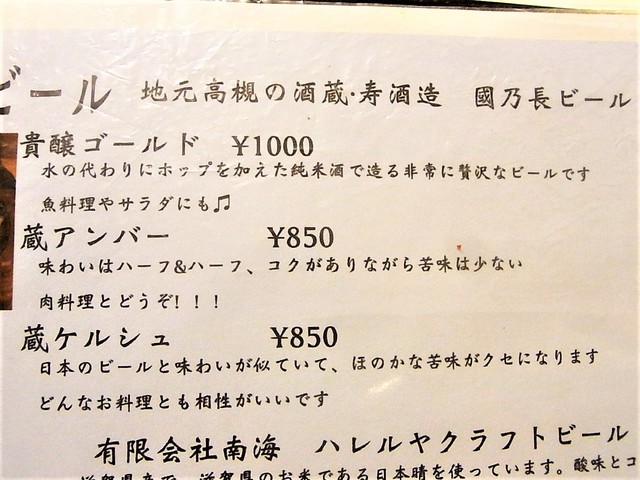 ビール 地元高槻の酒蔵・寿酒造 國乃長ビール
貴醸ゴールド ¥1000
水の代わりにホップを加えた純米酒で造る非常に贅沢なビールです
魚料理やサラダにも♫
蔵アンバー ¥850
味わいはハーフ&ハーフ、コクがありながら苦味は少ない
肉料理とどうぞ!!!
蔵ケルシュ ¥850
日本のビールと味わいが似ていて、ほのかな苦味がクセになります
どんなお料理とも相性がいいです
有限会社南海 ハレルヤクラフトビール
滋賀県産で、滋賀県のお米である日本晴を使っています。酸味とコ